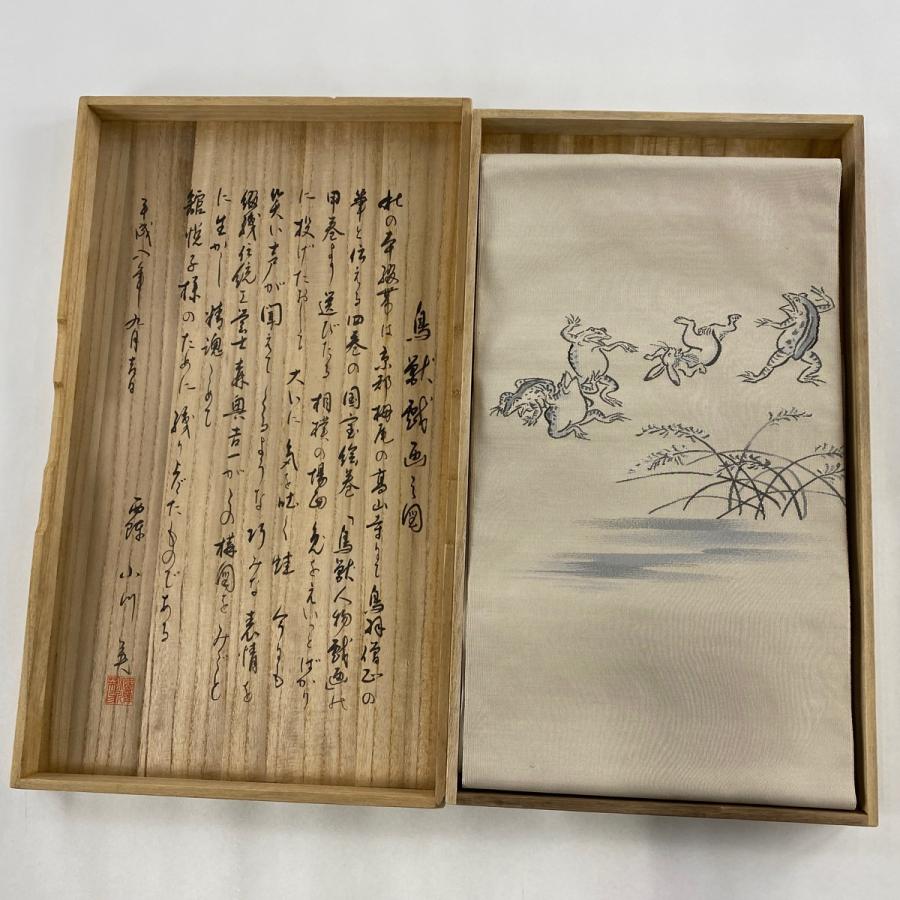 鳥獣戯画之図
此の本綴帯は京都栂尾の高山寺に 鳥羽僧正の
筆と伝える四巻の国宝絵巻「鳥獣人物戯画の
甲巻より 選びたる 相撲の場面 兎をえいっとばかり
に投げたおして 大いに 気を吐く蛙 今にも
笑い声が聞えてくるような 巧みな 表情を
綴織伝統工芸士 森 奥吉一がこの構図をみごと
に生かし 精魂こめて
舘悦子様のために 織り上げたものである
平成八年 九月吉日
西陣 小川 英